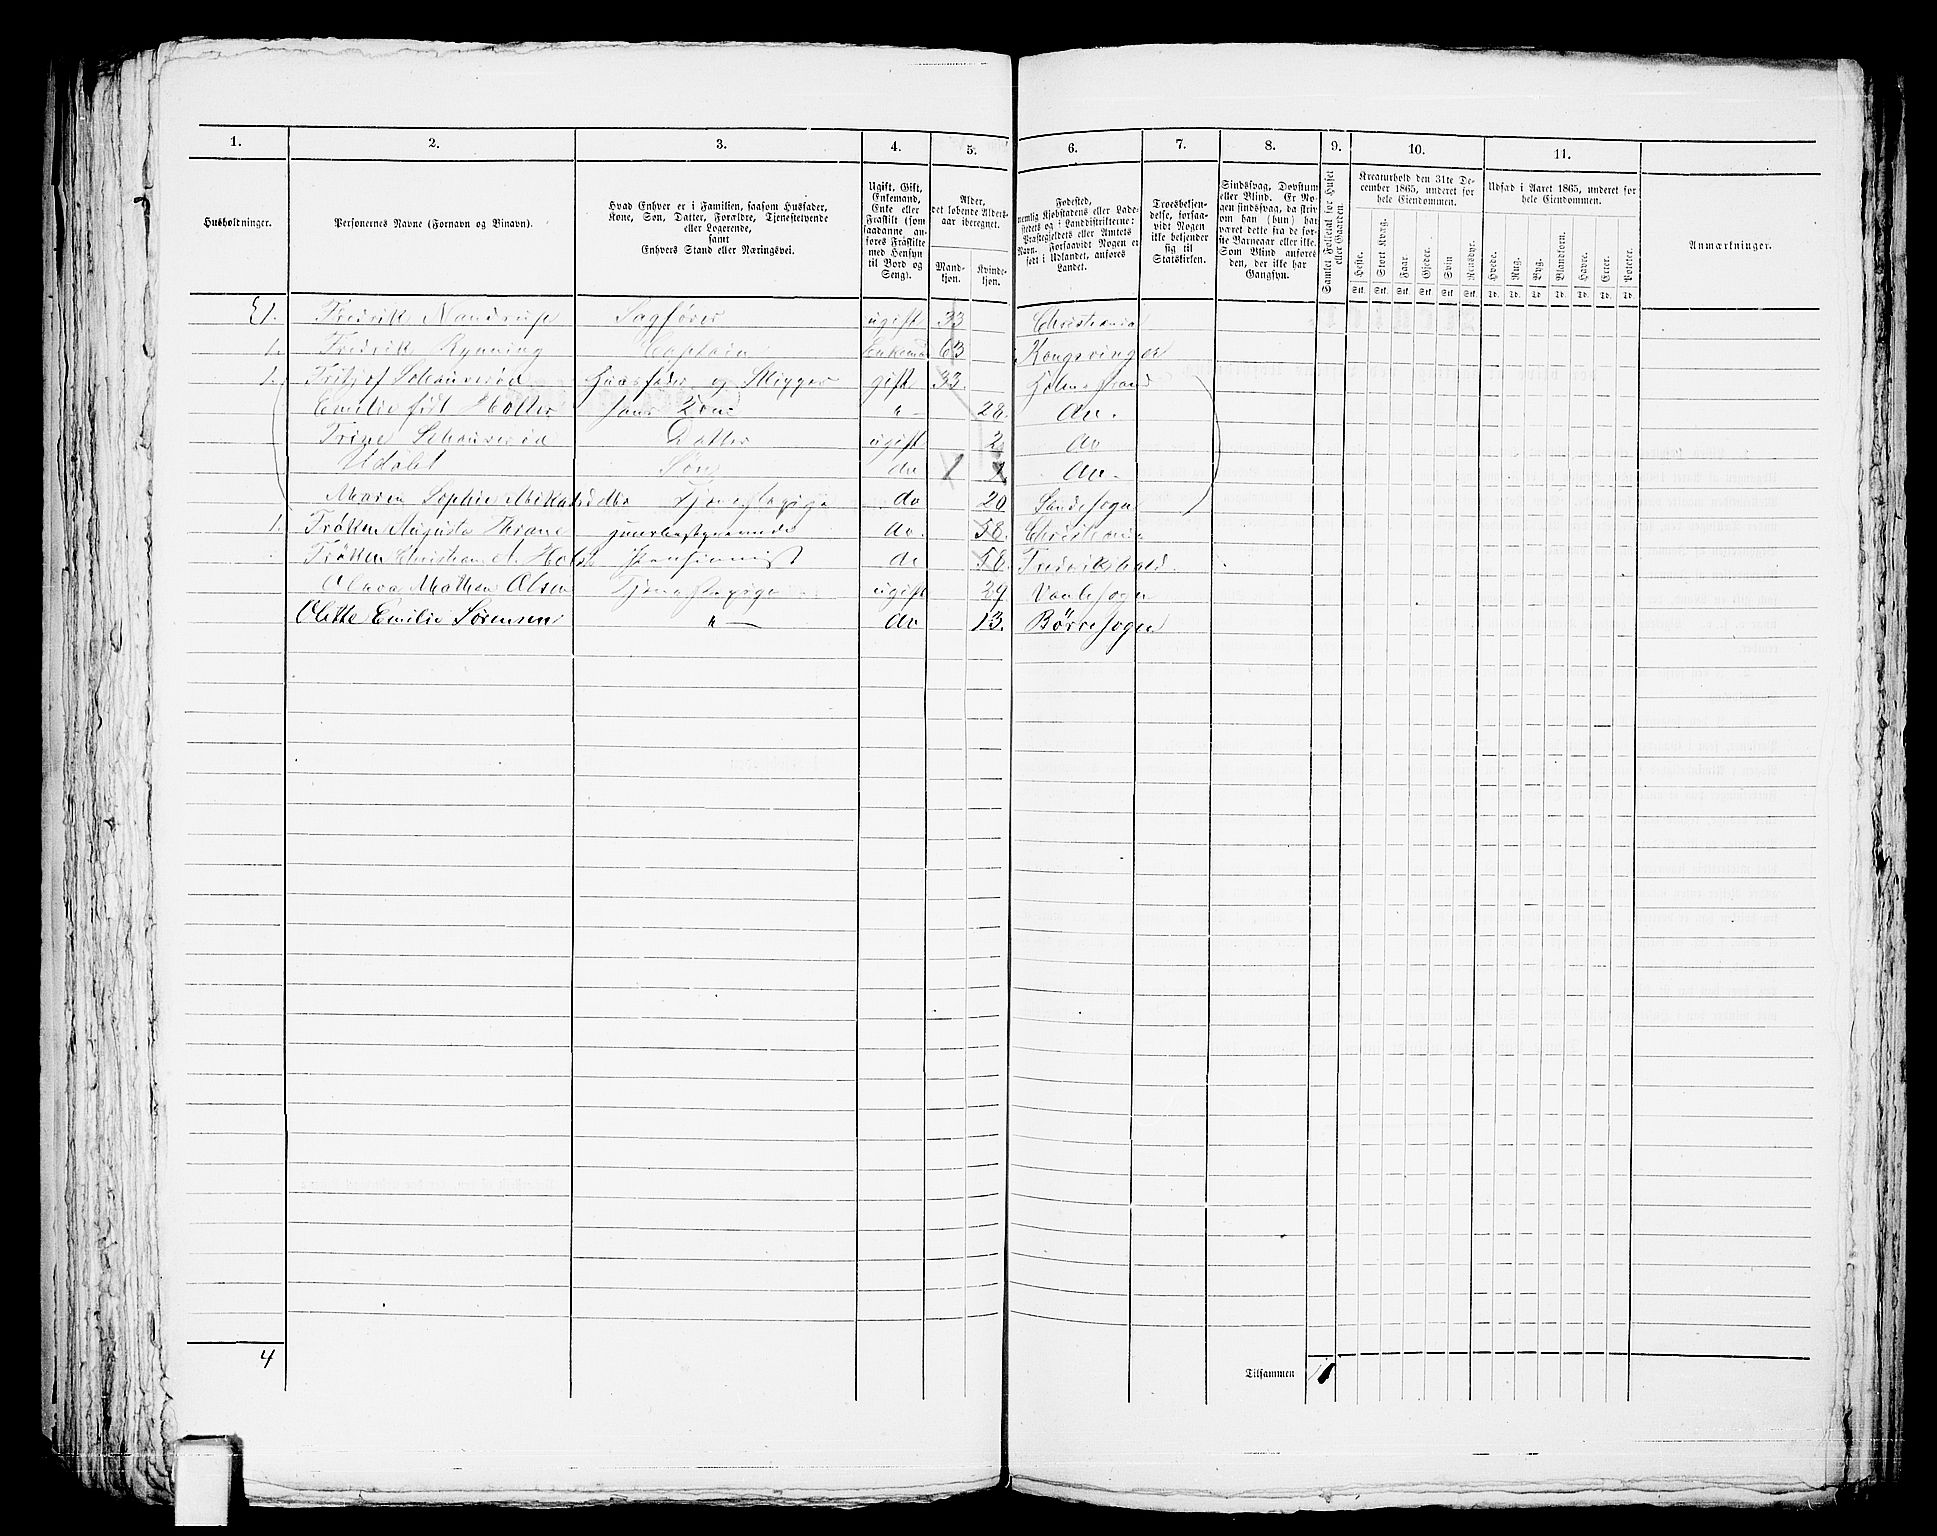 1. 2. 3. 4. 5. 6. 7. 8. 9. 10. 11.
Husholdninger.
Personernes Navne (Fornavn og Binavn).
Hvad Enhver er i Familien, saasom Husfader,
Kone, Søn, Datter, Forældre, Tjenestetyende
eller Logerende,
samt
Enhvers Stand eller Næringsvei.
Ugift, Gift,
Enkemand,
Enke eller
Fraskilt (som
saadanne an-
føres Fraskilte
med Hensyn
til Bord og
Seng).
Alder,
det løbende Alders-
aar iberegnet.
Mand-
kjøn.
Kvinde-
kjøn.
Fødested,
nemlig Kjøbstadens eller Lade-
stedets og i Landdistrikterne:
Præstegjeldets eller Amtets
Navn. Forsaavidt Nogen er
født i Udlandet, anføres
Landet.
Troesbekjen-
delse, forsaa-
vidt Nogen
ikke bekjender
sig til
Statskirken.
Sindssvag, Døvstum
eller Blind. Er No-
gen sindssvag, da skriv
om han (hun) har
været dette fra de før-
ste Barneaar eller ikke.
Som Blind anføres
den, der ikke har
Gangsyn.
Samlet Folketal for Huset
eller Gaarden.
Kreaturhold den 31te De-
cember 1865, underet for
hele Eiendommen.
Heste. Stort Kvæg. Faar. Gjeder. Svin Rensdyr.
Stk. Stk. Stk. Stk. Stk. Stk.
Udsæd i Aaret 1865, underet for
hele Eiendommen.
Hvede. Rug. Byg. Blandkorn. Havre. Erter. Poteter.
Td. Td. Td. Td. Td. Td. Td.
Anmærkninger.
1. Fredrik Nandrup Sagfører ugift 33 Christiania
1. Fredrik Rynning Captain Enkemd 63 Kongsvinger
1. Fritjof Schauerød Huusfader og Skipper gift 33 Holmestrand
Emilie født Holter hans Kone " 28. do.
Trine Schauerød Datter ugift 2 do
Søn do 1 do.
Maren Sophie Tjenestepige do 20 Sande Sogn
1. Frøken Augusta Thrane do. 58. Christiania
Frøken Christiane A. Holst Pensionist do 58. Fredrikshald.
Olava Mathea Olsen Tjenestepige ugift 29 Vaale Sogn
Olette Emilie Sørensen " do 13. Borre Sogn
4
Tilsammen